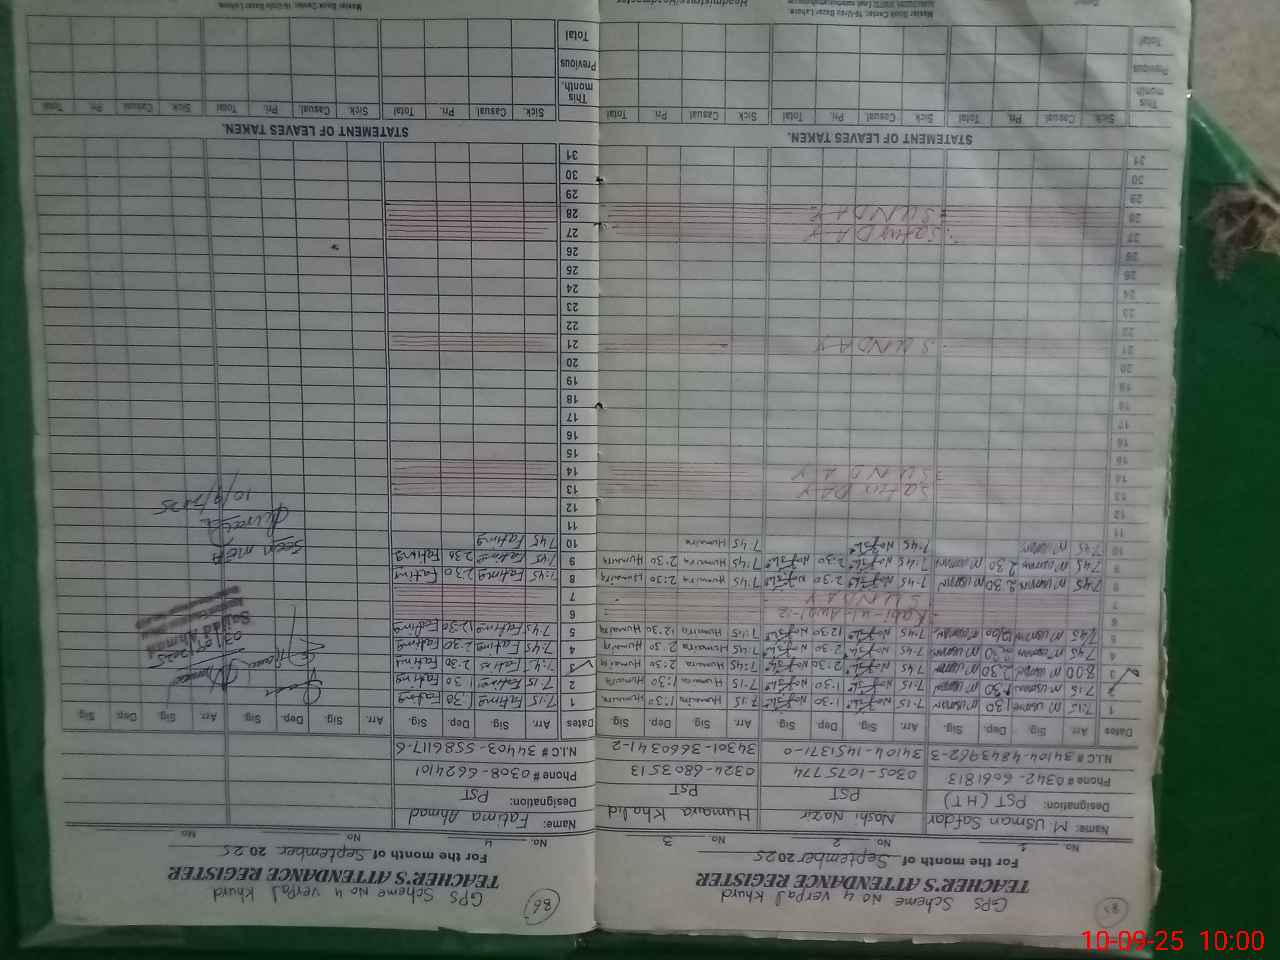 GPS Scheme No 4 verpal Khurd
TEACHER'S ATTENDANCE REGISTER
For the month of September 2025
No. 1 No. 2 No. 3
Name: M Usman Safdar Noshi Nazir Humaira Khalid
Designation: PST (HT) PST PST
Phone # 0342-6061813 0305-1075774 0324-6803513
N.I.C # 34104-4843962-3 34104-1451371-0 34301-3660341-2
Dates Arr. Sig. Dep. Sig. Arr. Sig. Dep. Sig. Arr. Sig. Dep. Sig.
1 7:15 M usman 1:30 M usman 7:15 1:30 7:15 Humaira 1:30 Humaira
2 7:15 M usman 1:30 M usman 7:15 1:30 7:15 Humaira 1:30 Humaira
3 8:00 M usman 2:30 M usman 7:45 2:30 7:45 Humaira 2:30 Humaira
4 7:45 M usman 2:30 M usman 7:45 2:30 7:45 Humaira 2:30 Humaira
5 7:45 M usman 12:00 M usman 7:45 12:30 7:45 Humaira 12:30 Humaira
6
7 SUNDAY
8 7:45 M usman 2:30 M usman 7:45 2:30 7:45 Humaira 2:30 Humaira
9 7:45 M usman 2:30 M usman 7:45 2:30 7:45 Humaira 2:30 Humaira
10 7:45 M usman 7:45 7:45 Humaira
11
12
13 SatuRDAY
14 SUNDAY
15
16
17
18
19
20
21 SUNDAY
22
23
24
25
26
27 SatuRDAY
28 SUNDAY
29
30
31
STATEMENT OF LEAVES TAKEN.
Sick. Casual. Pri. Total Sick Casual. Pri. Total Sick. Casual Pri. Total
This month.
Previous
Total
Headmistress/Headmaster
86
GPS Scheme No 4 verpal Khurd
TEACHER'S ATTENDANCE REGISTER
For the month of September 2025
No. 4 No. No.
Name: Fatima Ahmad
Designation: PST
Phone # 0308-6624101
N.I.C # 34403-5586117-6
Dates Arr. Sig. Dep. Sig. Arr. Sig. Dep. Sig. Arr. Sig. Dep. Sig.
1 7:15 Fatima 1:30 Fatima
2 7:15 Fatima 1:30 Fatima
3 7:45 Fatima 2:30 Fatima
4 7:45 Fatima 2:30 Fatima
5 7:45 Fatima 12:30 Fatima
6
7
8 7:45 Fatima 2:30 Fatima
9 7:45 Fatima 2:30 Fatima
10 7:45 Fatima
11
12
13
14
15
16
17
18
19
20
21
22
23
24
25
26
27
28
29
30
31
03/09/2025
Seen
10/9/2025
STATEMENT OF LEAVES TAKEN.
Sick. Casual. Pri. Total Sick. Casual. Pri. Total Sick Casual. Pri. Total
This month.
Previous
Total
Master Book Center, 16-Urdu Bazar Lahore.
10-09-25 10:00